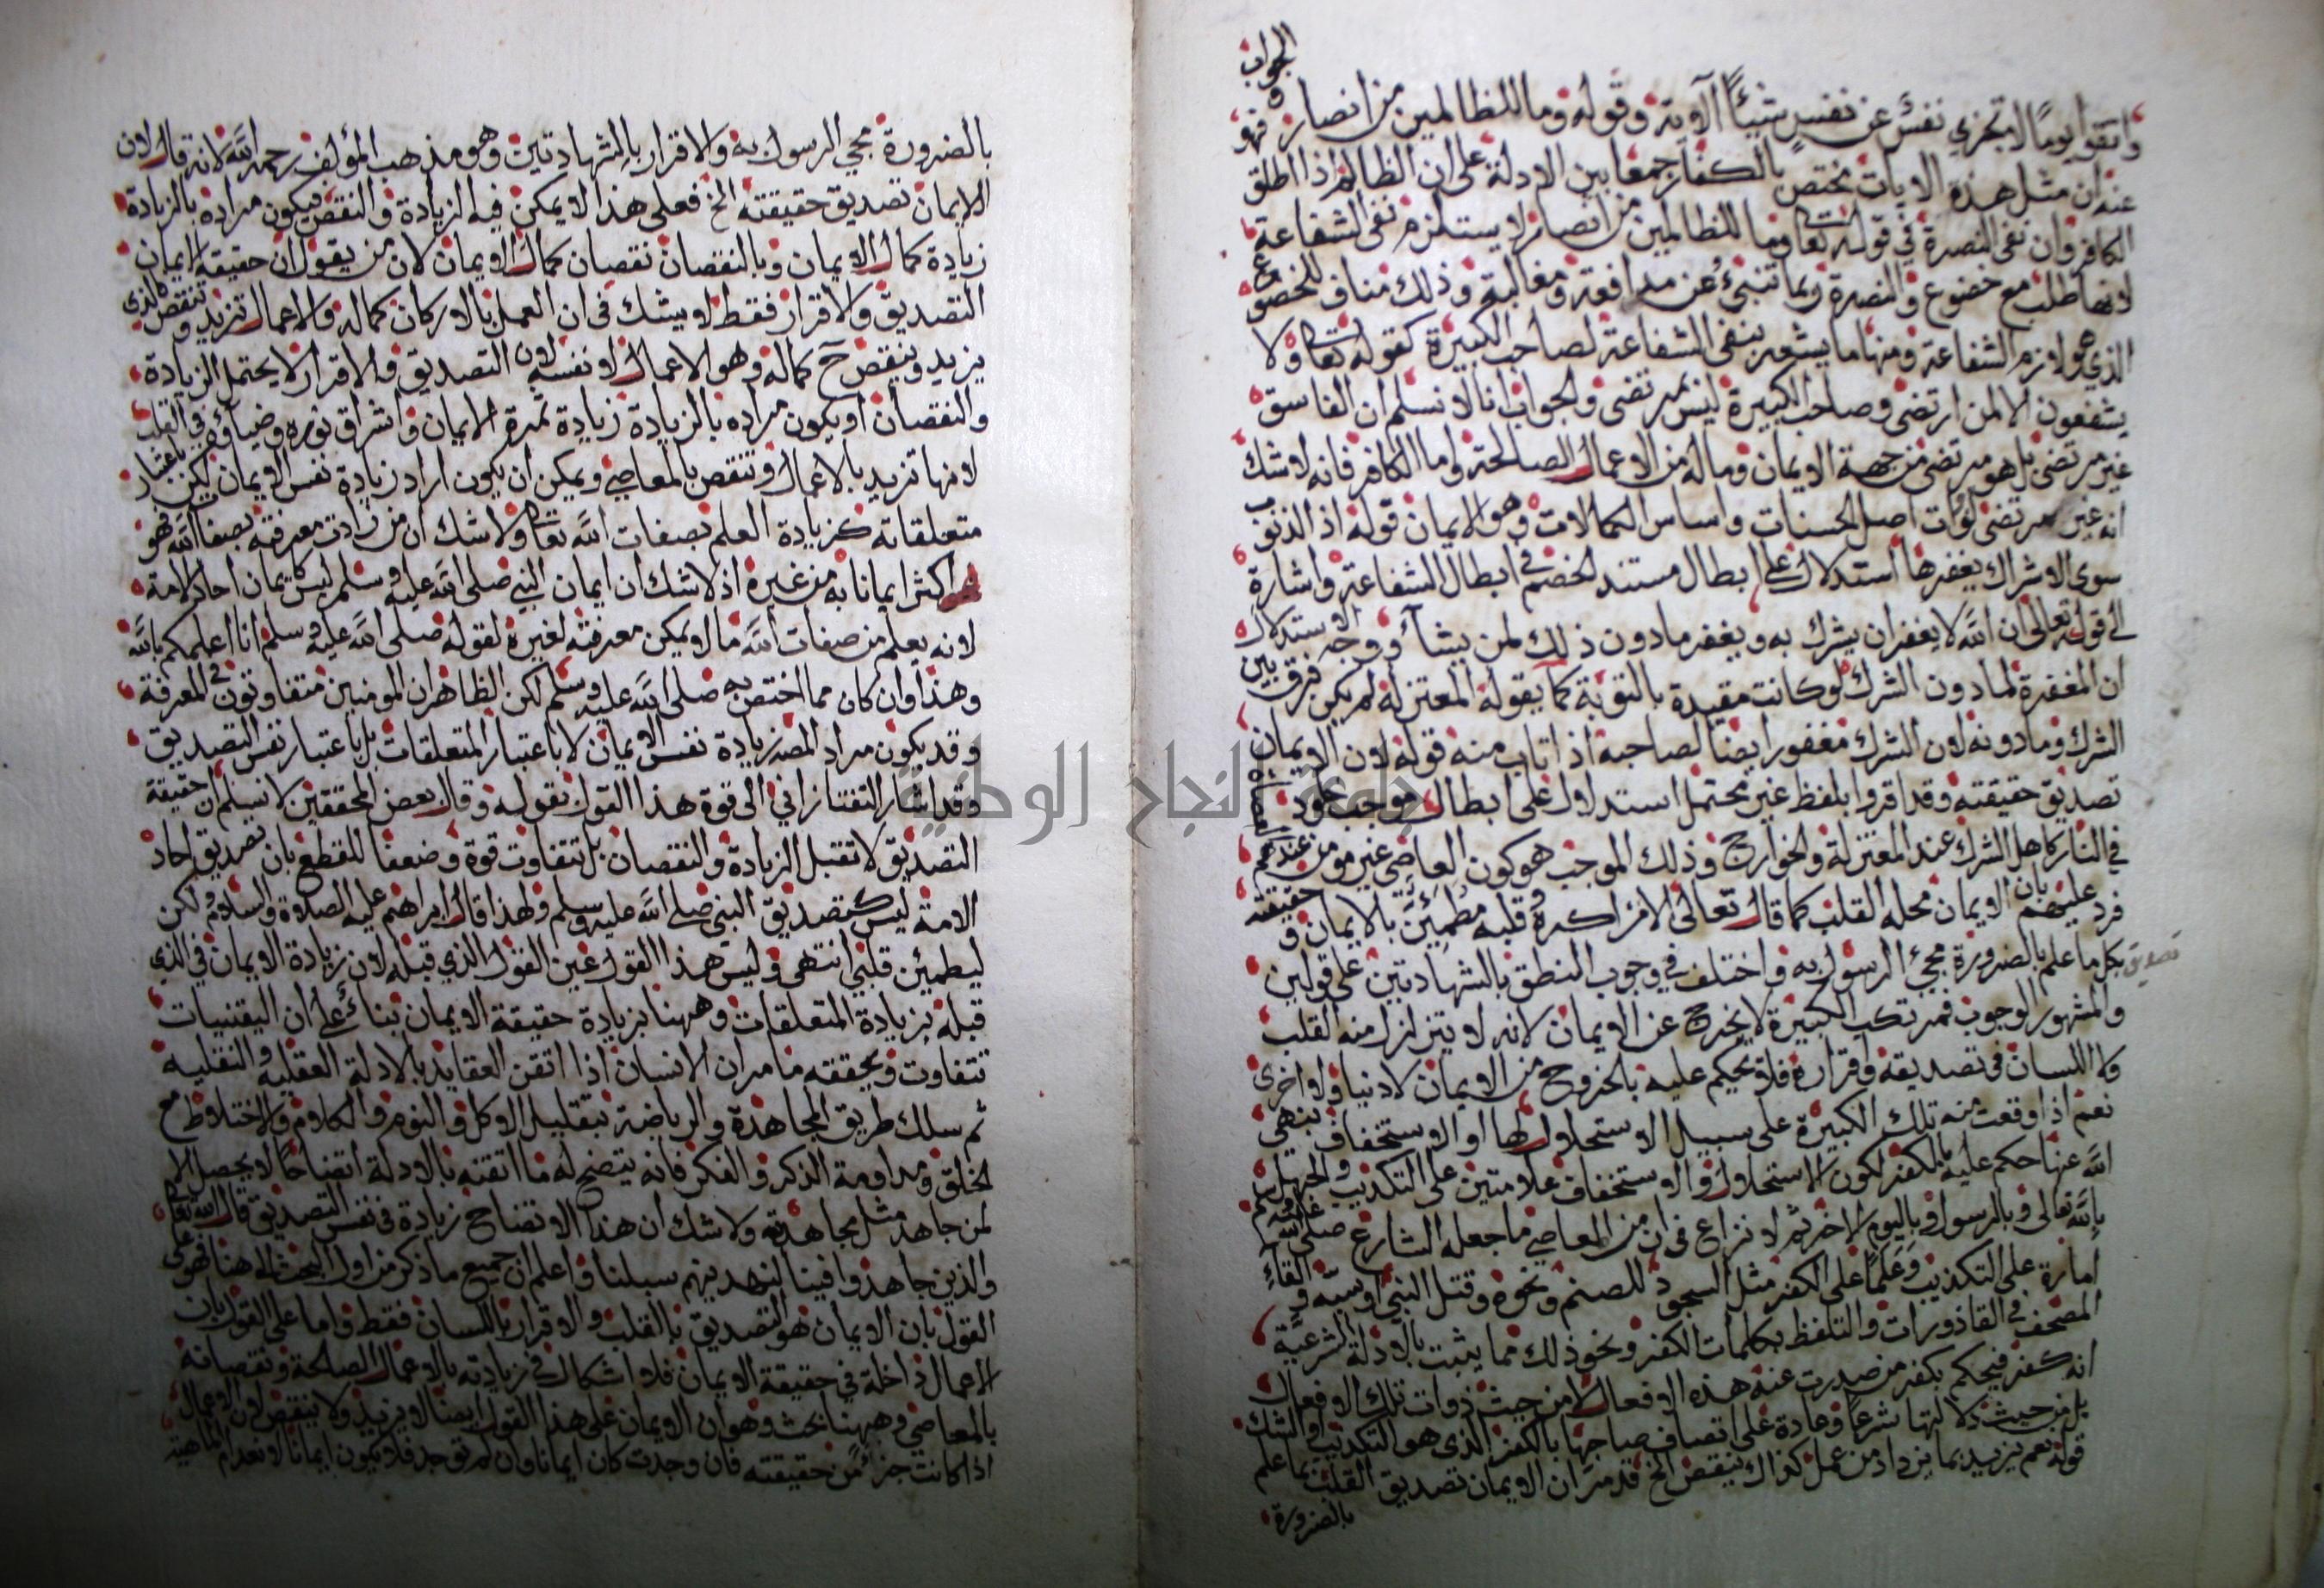 واتقوا يوما لا تجزي نفس عن نفس شيئا الآية وقوله وما للظالمين من انصار والجواب
عنه ان مثل هذه الايات تختص بالكفار جمعا بين الادلة على ان الظالم اذا اطلق فهو
الكافر وان نفى النصرة في قوله تعا وما للظالمين من انصار لا يستلزم نفى الشفاعة
لانها طلب مع خضوع والنصرة ربما تنبئ عن مدافعة ومغالبة وذلك مناف للخضوع
الذي هو لازم الشفاعة ومنها ما يشعر بنفى الشفاعة لصاحب الكبيرة كقوله تعا ولا
يشفعون الا لمن ارتضى وصاحب الكبيرة ليس بمرتضى والجواب انا لا نسلم ان الفاسق
غير مرتضى بل هو مرتضى من جهة الايمان وماله من الاعمال الصالحة واما الكافر فانه لا شك
انه غير مرتضى لفوات اصل الحسنات واساس الكمالات وهو الايمان قوله اذ الذنوب
سوى الاشراك يغفرها استدلال على ابطال مستند الخصم في ابطال الشفاعة واشارة
الى قوله تعالى ان الله لا يغفر ان يشرك به ويغفر ما دون ذلك لمن يشآء ووجه الاستدلال
ان المغفرة لما دون الشرك لو كانت مقيدة بالتوبة كما يقوله المعتزلة لم يكن فرق بين
الشرك وما دونه لان الشرك مغفور ايضا لصاحبه اذا تاب منه قوله لان الايمان
تصديق حقيقته وقد اقروا بلفظ غير محتمل استدلال على ابطال موجب خلود العصاة
في النار كاهل الشرك عند المعتزلة والخوارج وذلك الموجب هو كون العاصي غير مومن عندهم
فرد عليهم بان الايمان محله القلب كما قال تعالى الا من اكره وقلبه مطمئن بالايمان وحقيقته
تصديق بكل ما علم بالضرورة مجئ الرسول به واختلف في وجوب النطق بالشهادتين على قولين
والمشهور الوجوب فمرتكب الكبيرة لا يخرج عن الايمان لانه لا يتزلزل منه القلب
ولا اللسان في تصديقه واقراره فلا يحكم عليه بالخروج من الايمان لا دنيا ولا اخرى
نعم اذا وقعت منه تلك الكبيرة على سبيل الاستحلال لها او الاستخفاف بنهي
الله عنها حكم عليه بالكفر لكون الاستحلال والاستخفاف علامتين على التكذيب والجهل
بالله تعالى وبالرسول وباليوم الاخر ثم لا نزاع في ان من المعاصي ما جعله الشارع صلى الله عليه وسلم
امارة على التكذيب وعلما على الكفر مثل السجود للصنم ونحوه وقتل النبي او سبه والقاء
المصحف في القاذورات والتلفظ بكلمات الكفر ونحو ذلك مما يثبت بالادلة الشرعية
انه كفر فيحكم بكفر من صدرت عنه هذه الافعال لا من حيث ذوات تلك الافعال
بل من حيث دلالتها شرعا وعادة على اتصاف صاحبها بالكفر الذي هو التكذيب او الشك
قوله نعم يزيد بما يزداد من عمل كذاك ينقص الخ قد مر ان الايمان تصديق القلب بما علم
بالضرورة
بالضرورة مجي الرسول به والاقرار بالشهادتين وهو مذهب المؤلف رحمه الله لانه قال لان
الايمان تصديق حقيقته الخ فعلى هذا لا يمكن فيه الزيادة والنقص فيكون مراده بالزيادة
زيادة كمال الايمان وبالنقصان نقصان كمال الايمان لان من يقول ان حقيقة الايمان
التصديق والاقرار فقط لا يشك في ان العمل بالاركان كماله والاعمال تزيد وتنقص فالذي
يزيد وينقص ح كماله وهو الاعمال لا نفسه لان التصديق والاقرار لا يحتمل الزيادة
والنقصان او يكون مراده بالزيادة زيادة ثمرة الايمان واشراق نوره وضيائه في القلب
لانها تزيد بالاعمال وتنقص بالمعاصي ويمكن ان يكون اراد زيادة نفس الايمان لكن باعتبار
متعلقاته كزيادة العلم بصفات الله تعا ولا شك ان من زادت معرفته بصفات الله فهو
اكثر ايمانا به من غيره اذ لا شك ان ايمان النبي صلى الله عليه وسلم ليس كايمان احاد الامة
لانه يعلم من صفات الله ما لا يمكن معرفته لغيره لقوله صلى الله عليه وسلم انا اعلمكم بالله
وهذا وان كان مما اختص به صلى الله عليه وسلم لكن الظاهر ان المومنين متفاوتون في المعرفة
وقد يكون مراد المصـ زيادة نفس الايمان لا باعتبار المتعلقات بل باعتبار نفس التصديق
وقد اشار التفتازاني الى قوة هذا القول بقوله وقال بعض المحققين لا نسلم ان حقيقة
التصديق لا تقبل الزيادة والنقصان بل تتفاوت قوة وضعفا للقطع بان تصديق احاد
الامة ليس كتصديق النبي صلى الله عليه وسلم ولهذا قال ابراهيم عليه الصلاة والسلام لكن
ليطمئن قلبي انتهى وليس هذا القول عين القول الذي قبله لان زيادة الايمان في الذي
قبله بزيادة المتعلقات وههنا بزيادة حقيقة الايمان بناء على ان اليقينيات
تتفاوت وتحققه ما مر ان الانسان اذا اتقن العقايد بالادلة العقلية والنقليه
ثم سلك طريق المجاهدة والرياضة بتقليل الاكل والنوم والكلام والاختلاط مع
الخلق ومداومة الذكر والفكر فانه يتضح له ما اتقنه بالادلة اتضاحا لا يحصل الا
لمن جاهد مثل مجاهدته ولا شك ان هذا الاتضاح زيادة في نفس التصديق قال الله تعا
والذين جاهدوا فينا لنهدينهم سبلنا واعلم ان جميع ما ذكر من اول البحث الى هنا فهو على
القول بان الايمان هو التصديق بالقلب والاقرار باللسان فقط واما على القول بان
الاعمال داخلة في حقيقة الايمان فلا اشكال في زيادته بالاعمال الصالحة ونقصانه
بالمعاصي وههنا بحث وهو ان الايمان على هذا القول ايضا لا يزيد ولا ينقص لان الاعمال
اذا كانت جزءا من حقيقته فان وجدت كان ايمانا وان لم توجد فلا يكون ايمانا لانعدام الماهية
جامعة النجاح الوطنية